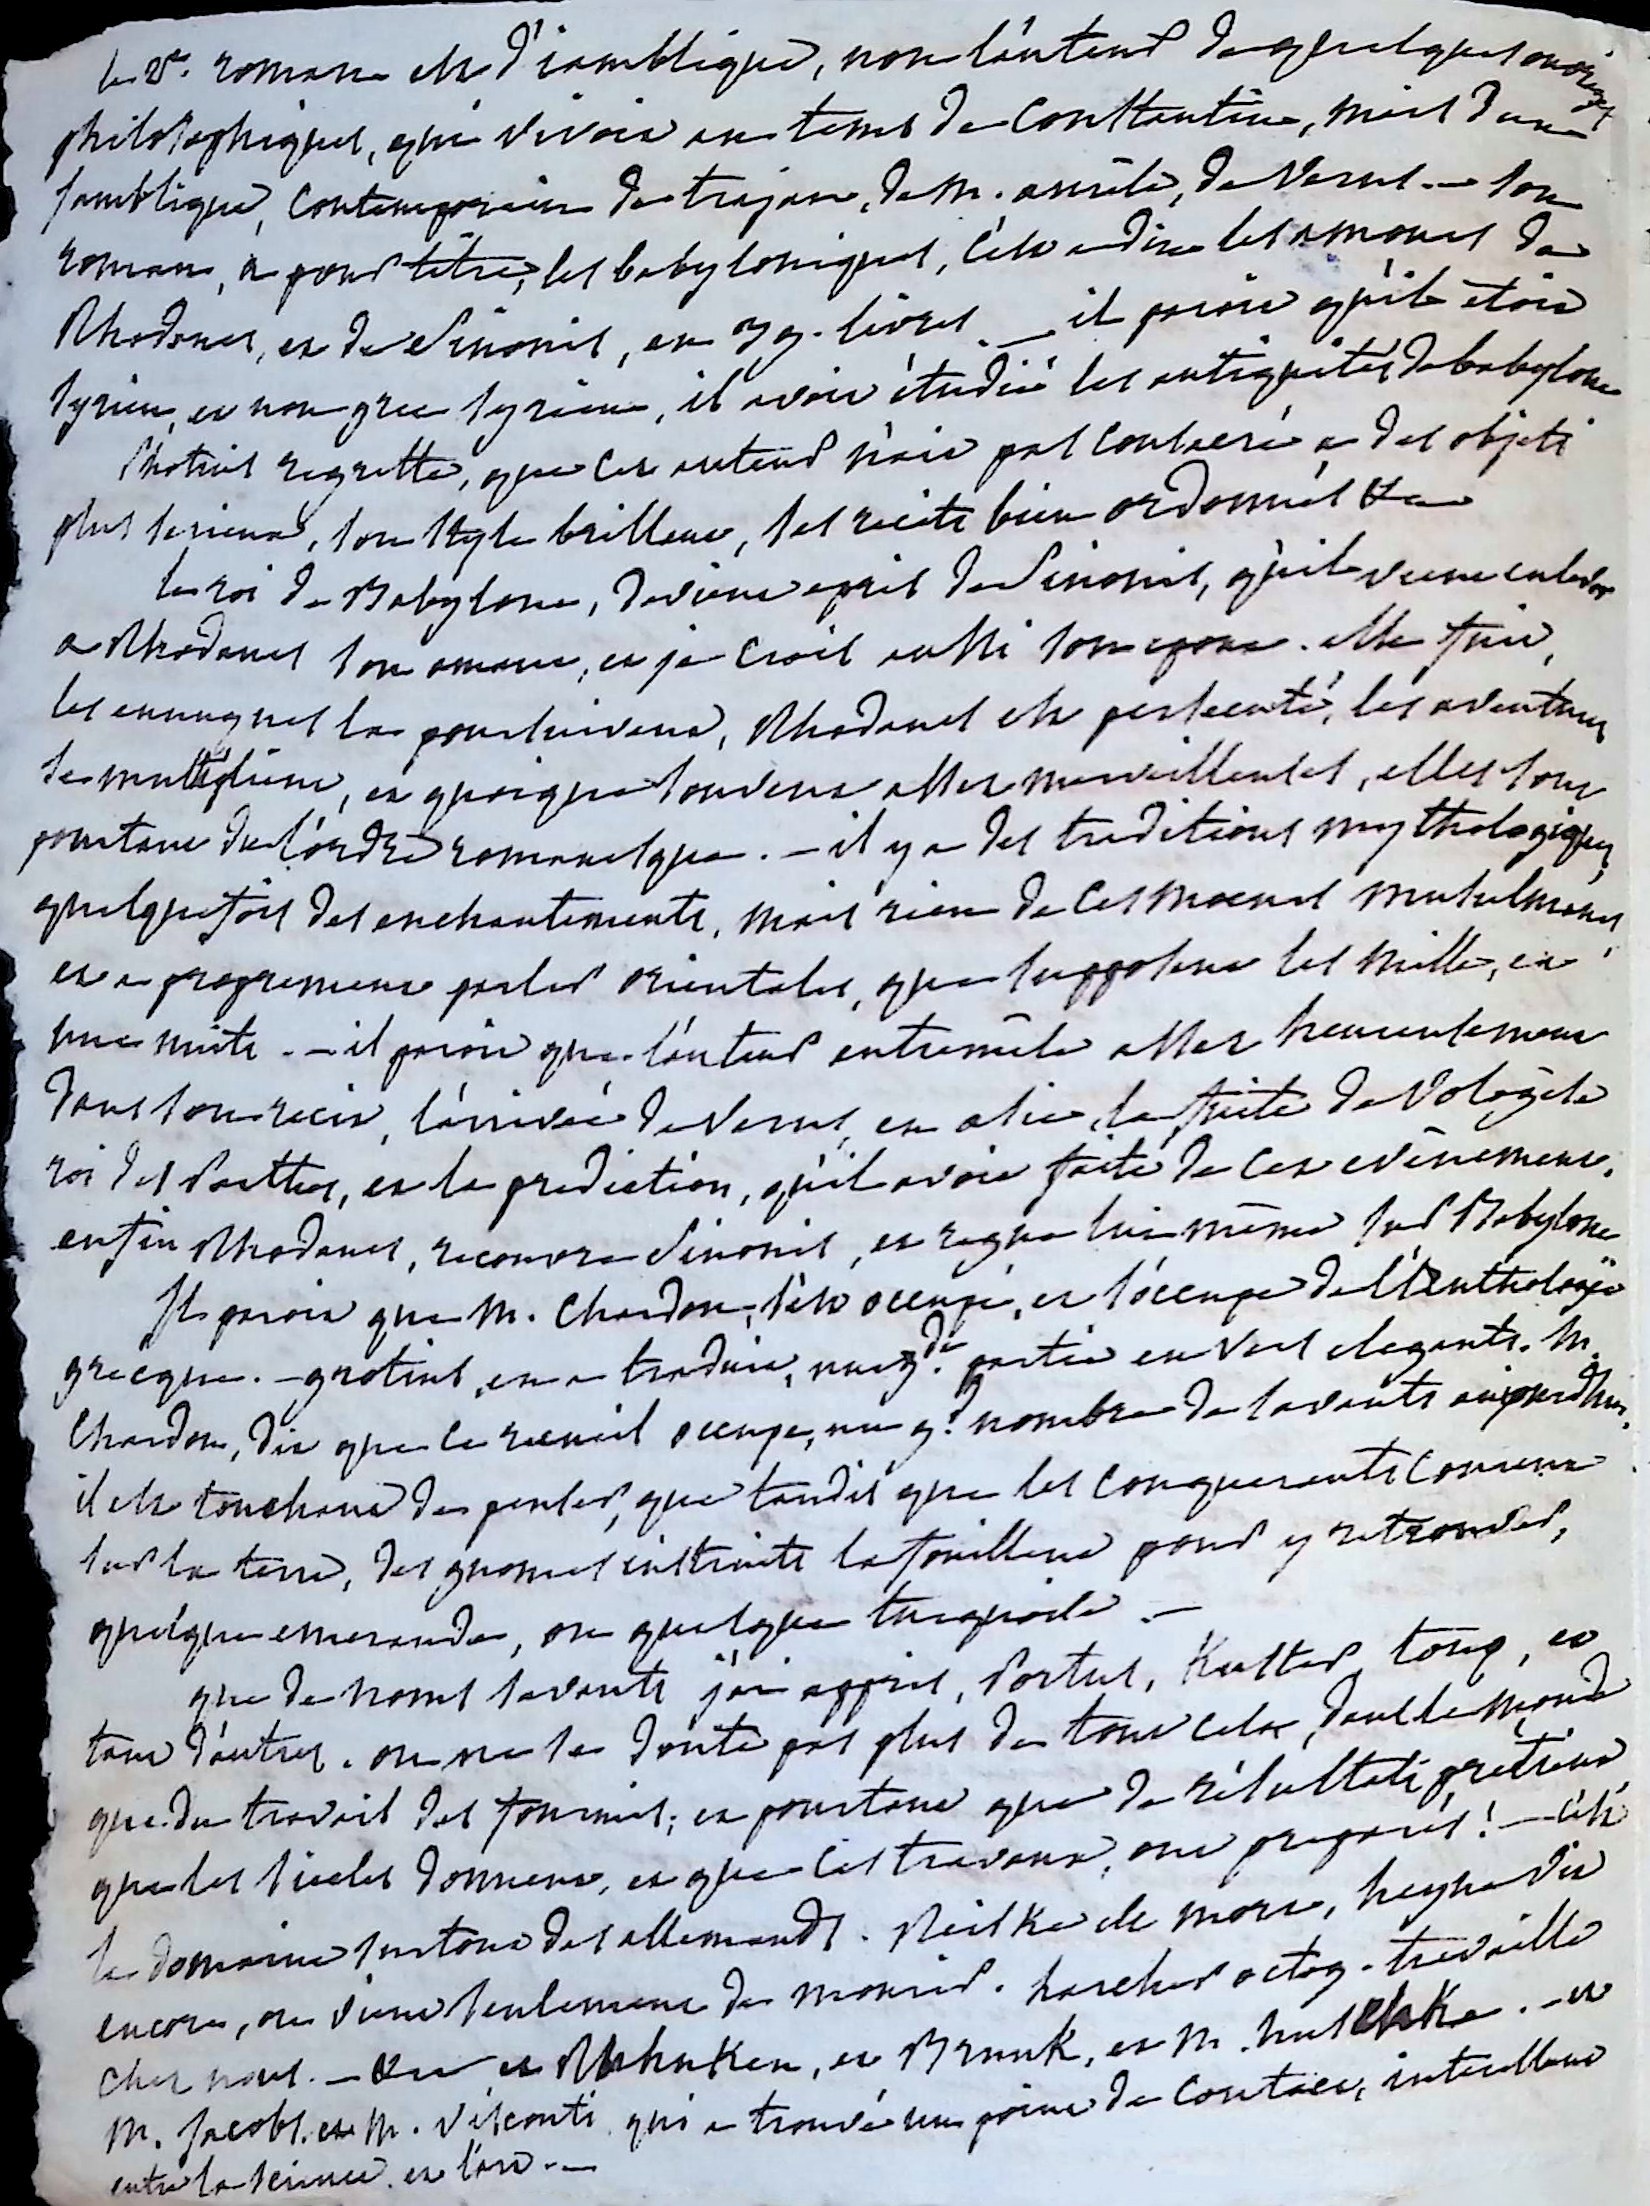 le 2d. roman est d'iamblique, non l'auteur de quelques ouvrages
philosophiques, qui vivoit au tems de Constantin, mais d'un
iamblique, contemporain de trajan, de M. aurele, de Verus. — son
roman, a pour titre, les babyloniques, c'est a dire les amours de
Rhodanes, et de Sinonis, en 39. livres. — il paroit qu'il etoit
syrien, et non grec syrien, il avoit étudié les antiquités de babylone
Photius regrette, que cet auteur n'ait pas consacré a des objets
plus serieux, son style brillant, ses recits bien ordonnés &c
le roi de Babylone, devient epris de Sinonis, qu'il veut enlever
a Rhodanes son amant, et je crois aussi son epoux. elle fuit,
les eunuques la poursuivent, Rhodanes est persecuté, les aventures
se multiplient, et quoique souvent assez merveilleuses, elles sont
pourtant de l'ordre romanesque. — il y a des traditions mythologiques,
quelquefois des enchantements, mais rien de ces moeurs musulmanes,
et a proprement parler orientales, que supposent les mille, et
une nuits. — il paroit que l'auteur entremêle assez heureusement
dans son recit, l'arrivée de Verus, en asie, la fuite de Vologèse
roi des Parthes, et la prediction, qu'il avoit faite de ces evênemens.
enfin Rhodanes, recouvre Sinonis, et regne lui même sur Babylone
Il paroit que M. Chardon, s'est occupé, et s'occupe de l'Anthologie
grecque. — grotius, en a traduit, une gde. partie en vers elegants. M.
Chardon, dit que ce recueil occupe, un gd. nombre de savants aujourdhui,
il est touchant de penser, que tandis que les conquerants courent
sur la terre, des gnomes instruits la fouillent pour y retrouver,
quelque emeraude, ou quelque turquoise. —
que de noms savants j'ai appris, Portus, Kuster, toup, et
tant d'autres. on ne se doute pas plus de tout cela, dans le monde
que du travail des fourmis; et pourtant que de résultats prétieux
que les siecles donnent, et que ces travaux, ont preparés! — c'est
le domaine surtout des allemands. Reiske est mort, heyne vit
encore, ou vient seulement de mourir. larcher octog. travaille
chez nous. — et Rhunken, et Brunk, et M. huschke. — et
M. Jacobs. et M. Visconti qui a trouvé un point de contact, intéressant
entre la science et l'art. —